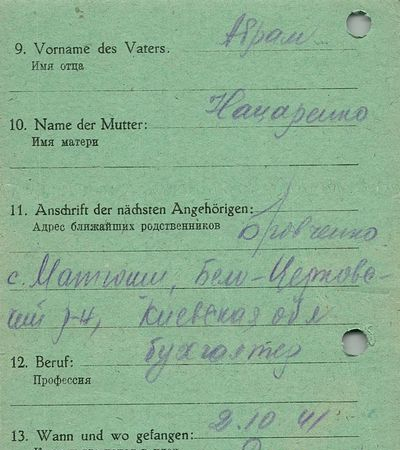 Абрам
9. Vorname des Vaters.
Имя отца
Нацаренко
10. Name der Mutter:
Имя матери
11. Anschrift der nächsten Angehörigen:
Адрес ближайших родственников
Бровченко
с. Матюши, Бело-Церковс-
кий р-н, Киевская обл
бухгалтер
12. Beruf:
Профессия
2.10.41
13. Wann und wo gefangen: